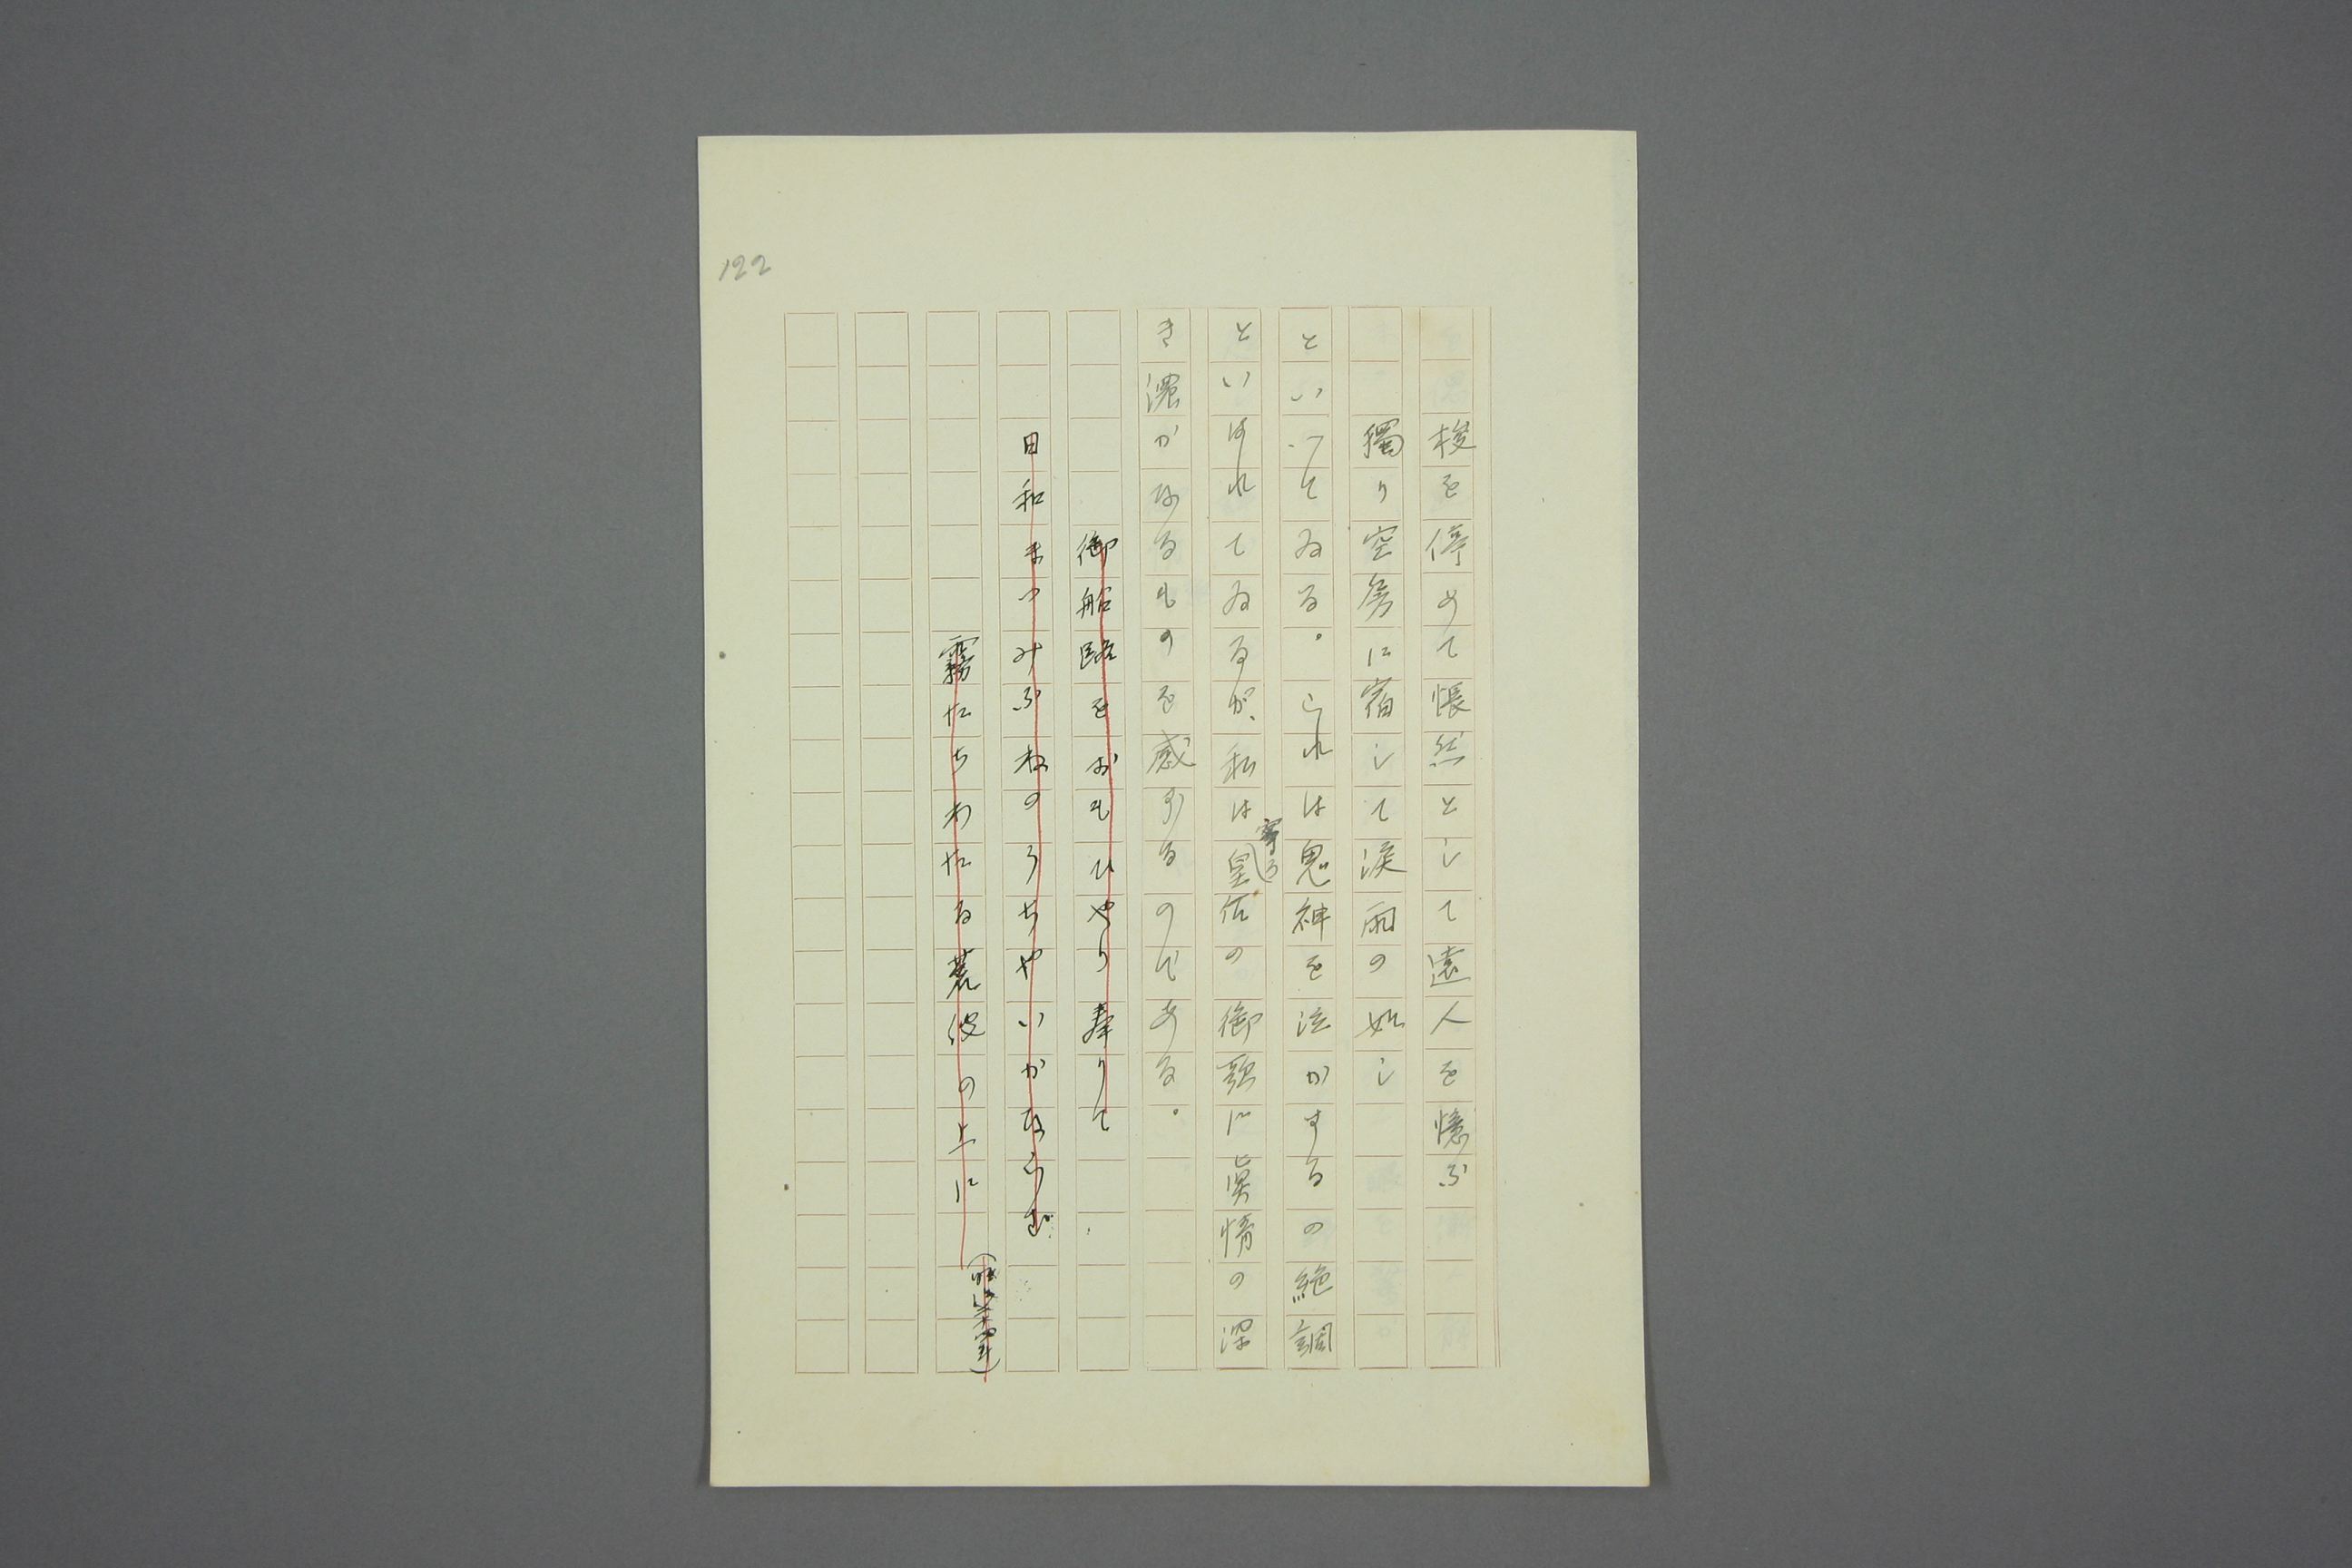 122
梭を停めて悵然として遠人を憶ふ
獨り空房に宿して涙雨の如し
といつてゐる。これは鬼神を泣かするの絶調
といはれてゐるが、私は寧ろ皇后の御歌に眞情の深
き濃かなるものを感ずるのである。
御船路をおもひやり奉りて
日和まつみふねのうちやいかならむ
霧たちわたる荒波の上に